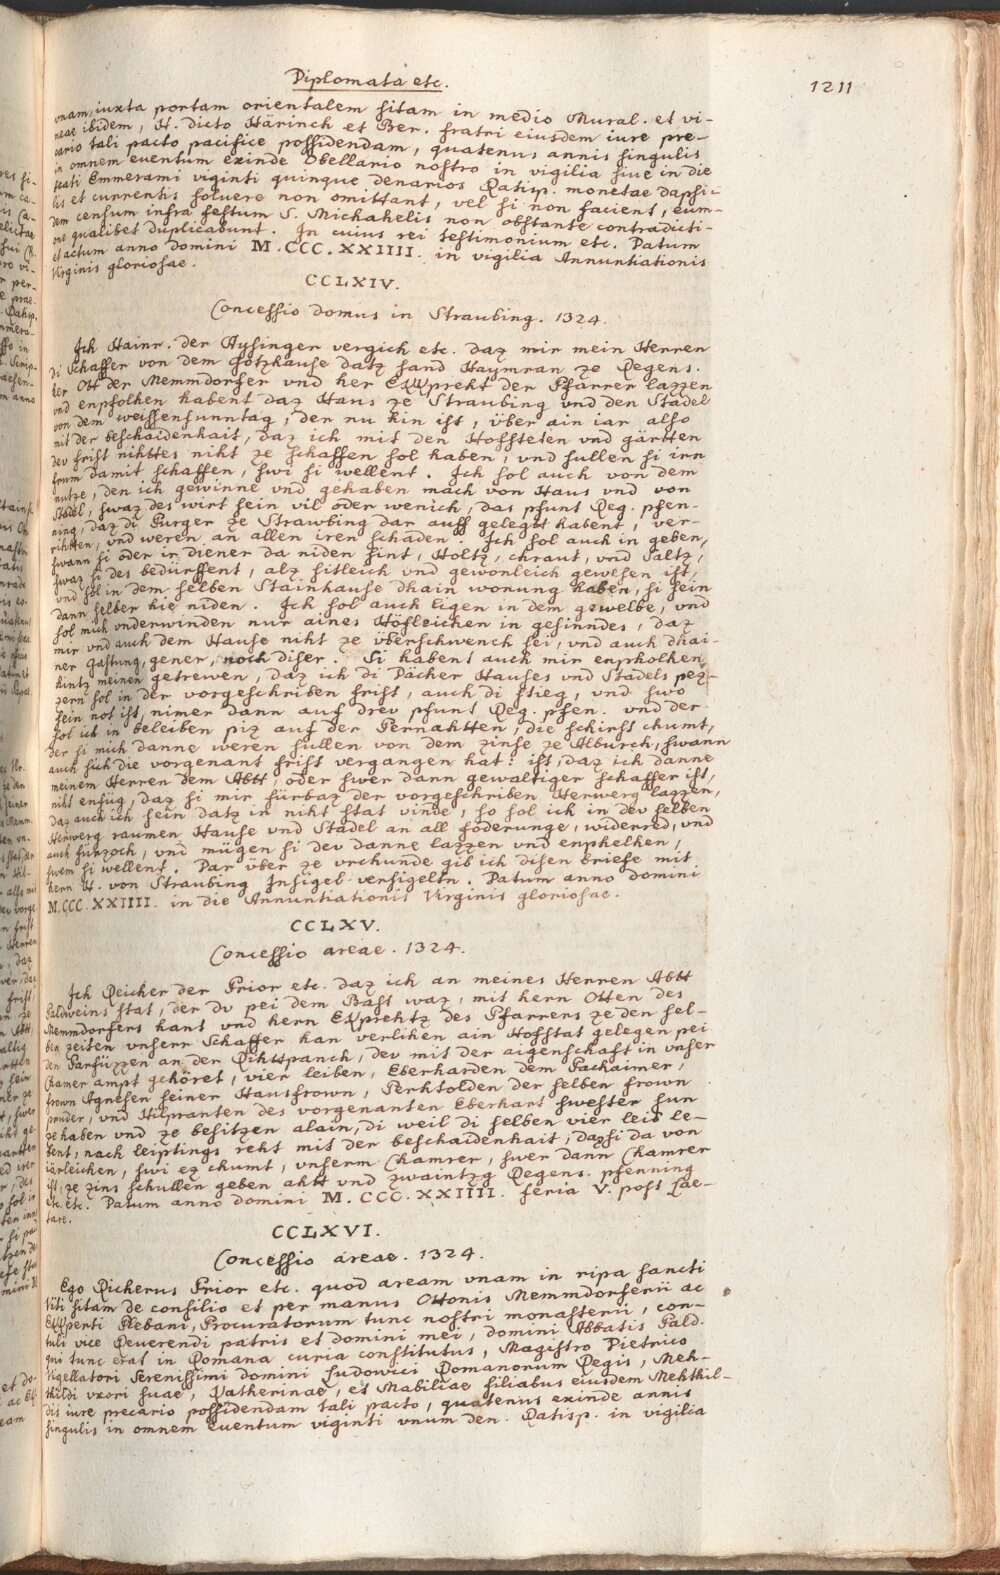 Diplomata etc.
1211
vnam, iuxta portam orientalem sitam in medio Mural. et vi-
neae ibidem, H. dicto Härinch et Ber. fratri eiusdem iure pre-
cario tali pacto pacifice possidendam, quatenus annis singulis
in omnem euentum exinde Obellario nostro in vigilia siue in die
beati Emmerami viginti quinque denarios Ratisp. monetae dapsi-
lis et currentis soluere non omittant, vel si non facient, eum-
dem censum infra festum S. Michahelis non obstante contradicti-
one qualibet duplicabunt. In cuius rei testimonium etc. Datum
et actum anno Domini M.CCC.XXIIII. in vigilia Annuntiationis
Virginis gloriosae.
CCLXIV.
Concessio domus in Straubing. 1324.
Ich Hainr. der Aysinger vergich etc. daz mir mein Herren
di Schaffer von dem Gotzhause datz sand Haymran ze Regens.
her Ott der Memmdorfer vnd her Ekkpreht der Pfarrer lazzen
vnd enpfolhen habent daz Haus ze Straubing vnd den Stadel
von dem weissensunntag, der nu hin ist, über ain iar also
mit der beschaidenhait, daz ich mit den Hofsteten vnd gärtten
der frist nihttes niht ze schaffen sol haben, vnd sullen si irn
frum damit schaffen, swi si wellent. Ich sol auch von dem
nutze, den ich gewinne vnd gehaben mach von Haus vnd von
Stadel, swaz des wirt sein vil oder wenich, das pfunt Reg. pfen-
ning, daz di Purger ze Strawbing dar auff gelegt habent, ver-
rihtten, vnd weren an allen iren schaden. Ich sol auch in geben,
swann si oder ir diener da niden sint, Holtz, chraut, vnd Saltz,
swaz si des bedürffent, alz sitleich vnd gewonleich gewesen ist,
vnd sol in dem selben Stainhause dhain wonung haben, si sein
dann selber hie niden. Ich sol auch ligen in dem gewelbe, vnd
sol mich vnderwinden nur aines Höfleichen in gesinndes, daz
mir vnd auch dem Hause niht ze überschwench sei, vnd auch dhai-
ner gastung, gener, noch diser. Si habent auch mir enpholhen
hintz meinen getrewen, daz ich di Dächer Hauses vnd Stadels pez-
zern sol in der vorgeschriben frist, auch di stieg, vnd swo
sein not ist, nimer dann auf drev pfunt Reg. pfen. vnd der
sol ich in beleiben piz auf der Pernahtten, die schirst chumt,
der si mich danne weren sullen von dem zinse ze Alburch, swann
auch sich die vorgenant frist vergangen hat: ist, daz ich danne
meinem Herren dem Abtt, oder swer dann gewaltiger schaffer ist,
niht enfüg, daz si mir fürbaz der vorgeschriben Herwerg lazzen,
daz auch ich sein datz in niht stat vinde, so sol ich in dev selben
Herwerg raumen Hause vnd Stadel an all foderunge, widerred, vnd
auch fürzoch, vnd mügen si dev danne lazzen vnd enphelhen,
swem si wellent. Dar über ze vrchunde gib ich disen briefe mit
hern H. von Straubing Insigel versigeltn. Datum anno domini
M.CCC.XXIIII. in die Annuntiationis Virginis gloriosae.
CCLXV.
Concessio areae. 1324.
Ich Reicher der Prior etc. daz ich an meines Herren Abtt
Baldweins stat, der dv pei dem Bast waz, mit hern Otten des
Memmdorfers hant vnd hern Ekprehtz des Pfarrers ze den sel-
ben zeiten vnserr Schaffer han verlihen ain Hofstat gelegen pei
den Parfüzzen an der Rihttpanch, dev mit der aigenschaft in vnser
Chamer ampt gehöret, vier leiben, Eberharden dem Pachaimer,
frown Agnesen seiner Hausfrown, Perhtolden der selben frown
pruder, vnd Hilpranten des vorgenanten Eberhart swester sun
ze haben vnd ze besitzen alain, di weil di selben vier leib le-
bent, nach leiptings reht mit der beschaidenhait, daz si da von
iärleichen, swi ez chumt, vnserm Chamrer, swer dann Chamrer
ist, ze zins schullen geben ahtt vnd zwaintzg Regens. pfenning
etc. etc. Datum anno domini M.CCC.XXIIII. feria V. post Lae-
tare.
CCLXVI.
Concessio areae. 1324.
Ego Richerus Prior etc. quod aream vnam in ripa sancti
Viti sitam de consilio et per manus Ottonis Memmdorferii ac
Ekkperti Plebani, Procuratorum tunc nostri monasterii, con-
tuli vice Reuerendi patris et domini mei, domini Abbatis Bald.
qui tunc erat in Romana curia constitutus, Magistro Dietrico
Vigellatori Serenissimi domini Ludowici Romanorum Regis, Meh-
thildi vxori suae, Katherinae, et Mabiliae filiabus eiusdem Mehthil-
dis iure precario possidendam tali pacto, quatenus exinde annis
singulis in omnem euentum viginti vnum den. Ratisp. in vigilia